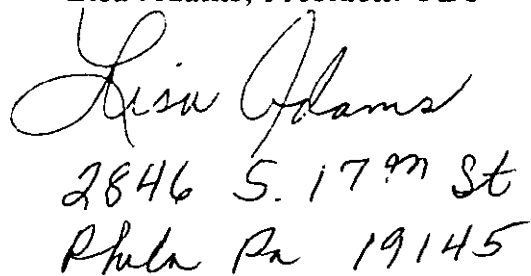 Lisa Adams
2846 S. 17th St
Phila Pa 19145